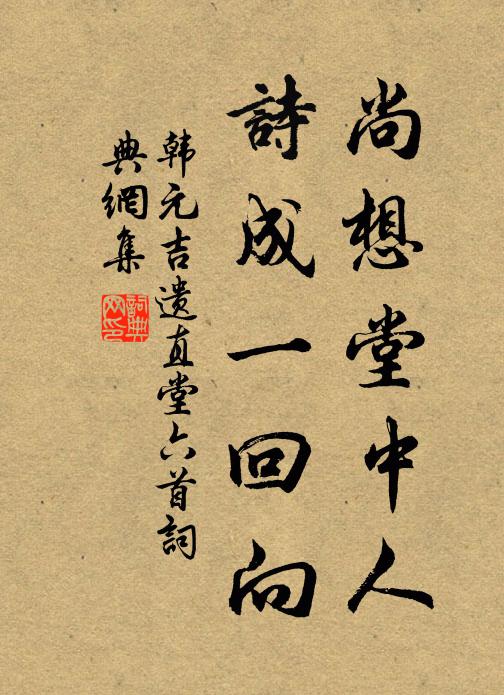 尚想堂中人
詩成一回向
韩元吉遗直堂六首詞
典網集
詞典
网印